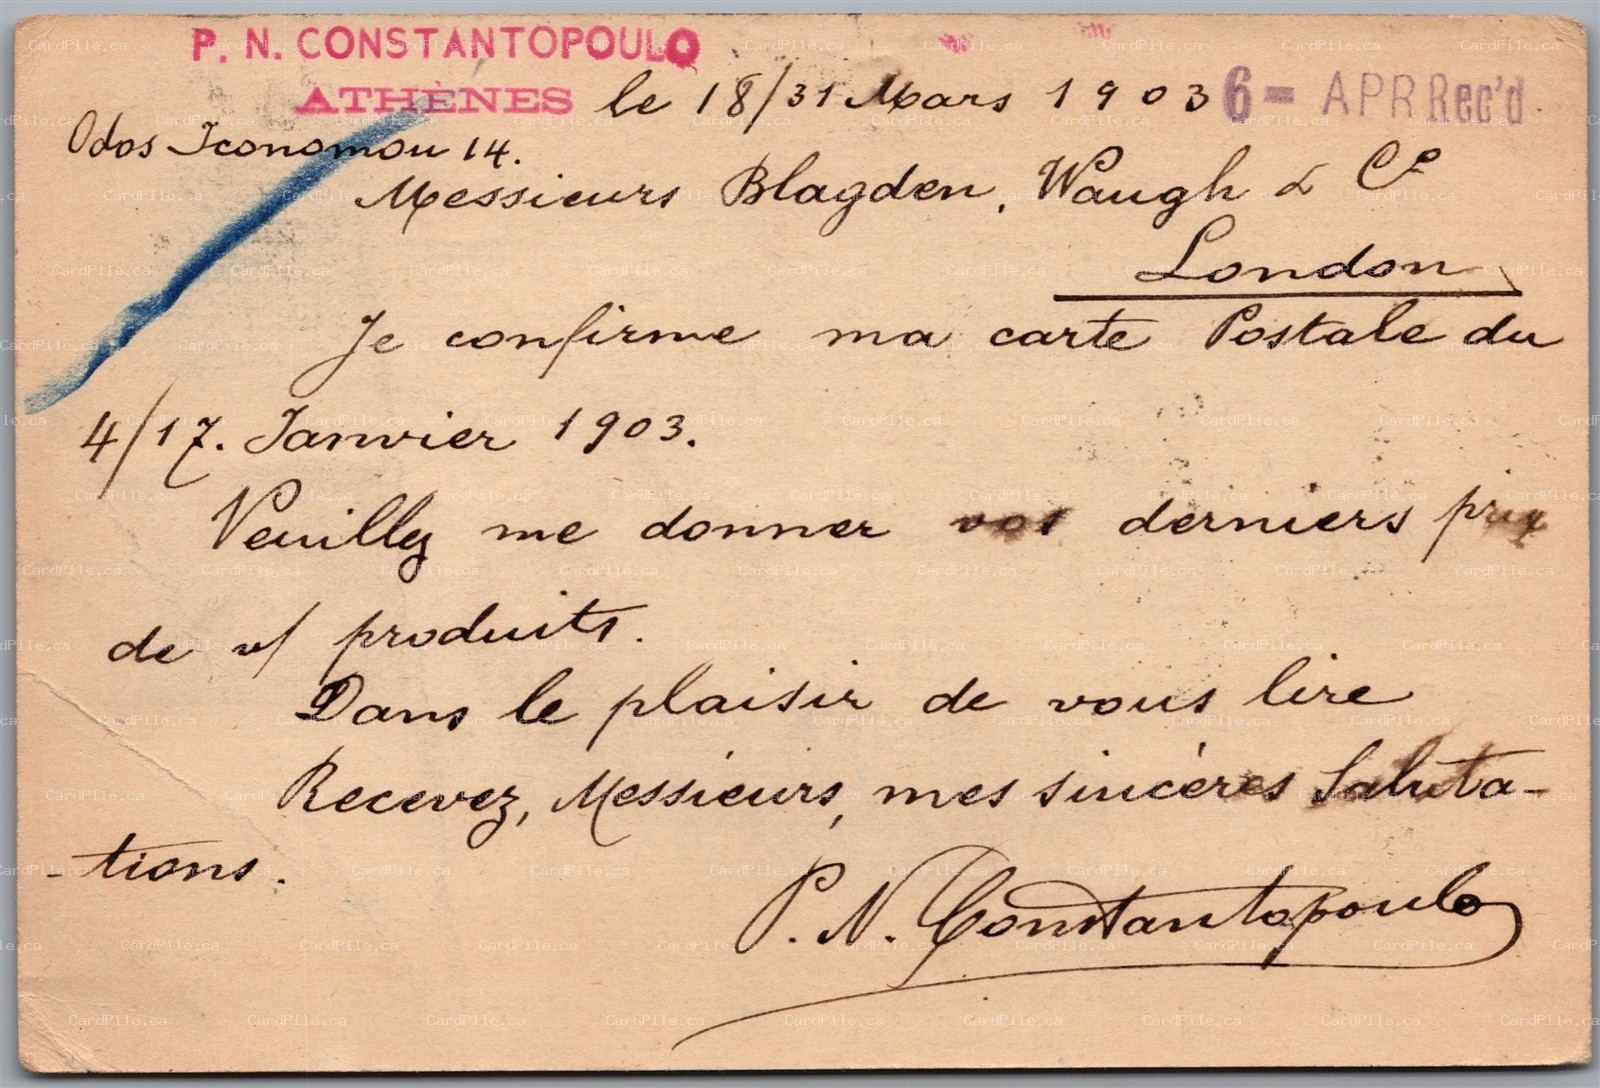 P. N. CONSTANTOPOULO
ATHÈNES le 18/31 Mars 1903 6 - APR Rec'd
Odos Iconomou 14.
Messieurs Blagden, Waugh & Cº
London
Je confirme ma carte Postale du
4/17. Janvier 1903.
Veuillez me donner vos derniers prix
de v/ produits.
Dans le plaisir de vous lire
Recevez, Messieurs, mes sincères Saluta-
-tions.
P. N. Constantopoulo
CardPile.ca